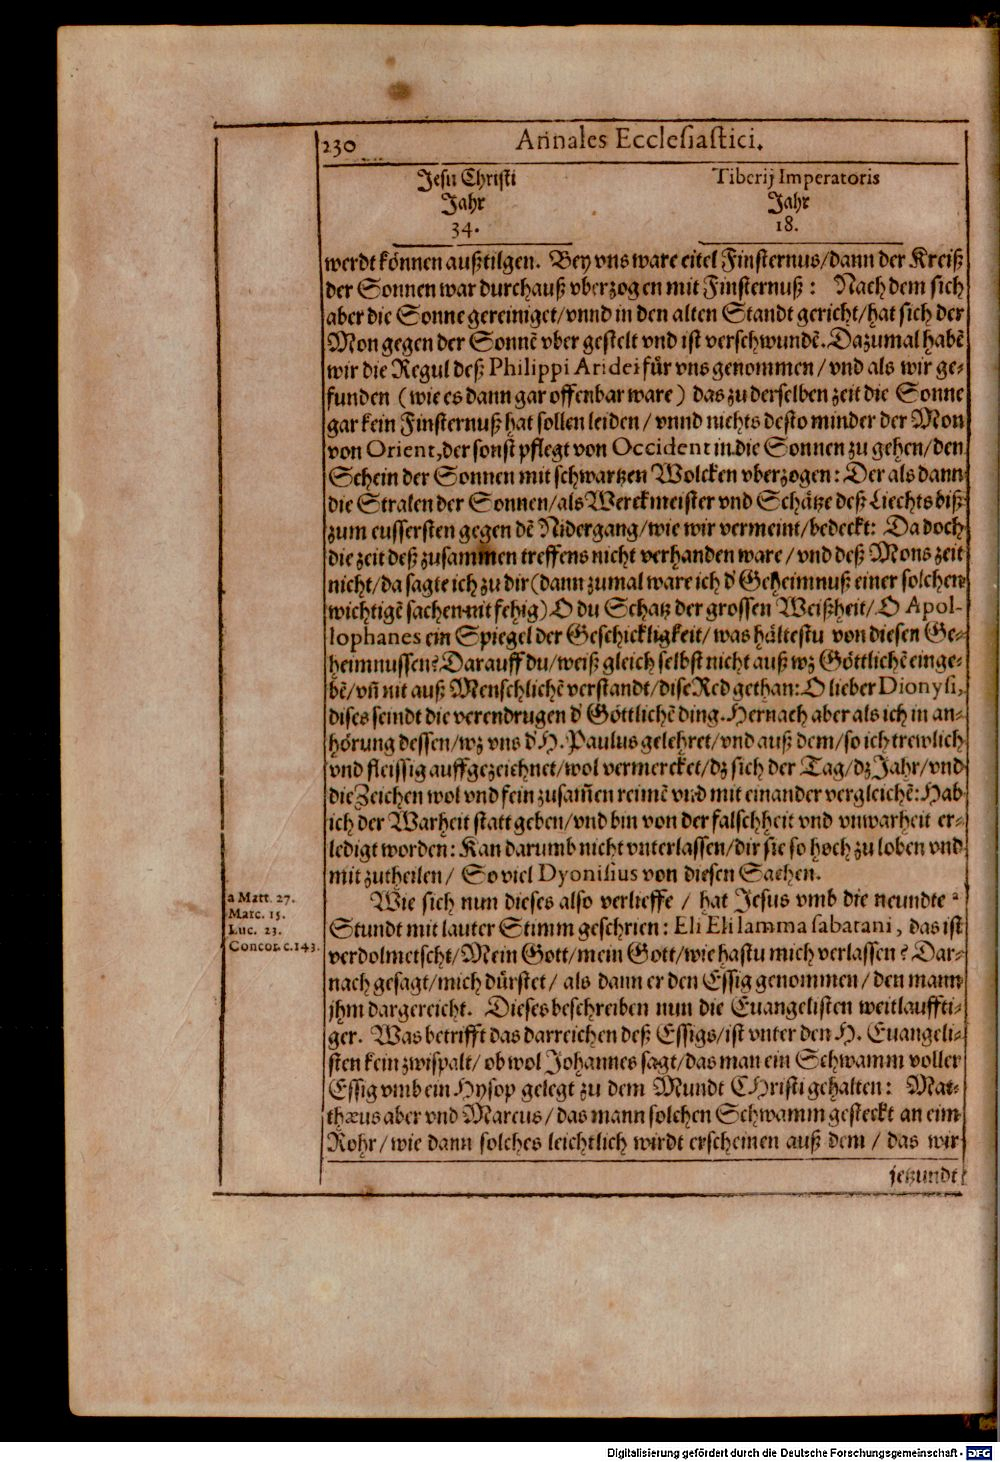 230 Annales Ecclesiastici.
Jesu Christi
Jahr
34.
Tiberij Imperatoris
Jahr
18.
werdt können außtilgen. Bey vns ware eitel Finsternus/dann der Kreiß
der Sonnen war durchauß vberzogen mit Finsternuß: Nach dem sich
aber die Sonne gereiniget/vnnd in den alten Standt gericht/hat sich der
Mon gegen der Sonnē vber gestelt vnd ist verschwundē. Dazumal habē
wir die Regul deß Philippi Aridei für vns genommen/vnd als wir ge-
funden (wie es dann gar offenbar ware) das zu derselben zeit die Sonne
gar kein Finsternuß hat sollen leiden/vnnd nichts desto minder der Mon
von Orient, der sonst pflegt von Occident in die Sonnen zu gehen/den
Schein der Sonnen mit schwartzen Wolcken vberzogen: Der als dann
die Stralen der Sonnen/als Werckmeister vnd Schätze deß Liechts biß
zum eussersten gegen dē Nidergang/wie wir vermeint/bedeckt: Da doch
die zeit deß zusammen treffens nicht verhanden ware/vnd deß Mons zeit
nicht/da sagte ich zu dir (dann zumal ware ich d' Geheimnuß einer solchen
wichtigē sachen nit fehig) O du Schatz der grossen Weißheit/O Apol-
lophanes ein Spiegel der Geschickligkeit/was hältestu von diesen Ge-
heimnussen? Darauff du/weiß gleich selbst nicht auß wz Göttlichē einge-
bē/vñ nit auß Menschlichē verstandt/dise Red gethan: O lieber Dionysi,
dises seindt die verendrugen d' Göttlichē ding. Hernach aber als ich in an-
hörung dessen/wz vns d' H. Paulus gelehret/vnd auß dem/so ich trewlich
vnd fleissig auffgezeichnet/wol vermercket/dz sich der Tag/dz Jahr/vnd
die Zeichen wol vnd fein zusam̃en reimē vnd mit einander vergleichē: Hab
ich der Warheit statt geben/vnd bin von der falschheit vnd vnwarheit er-
ledigt worden: Kan darumb nicht vnterlassen/dir sie so hoch zu loben vnd
mit zutheilen/ So viel Dyonisius von diesen Sachen.
Wie sich nun dieses also verlieffe / hat Jesus vmb die neundte a
Stundt mit lauter Stimm geschrien: Eli Eli lamma sabatani, das ist
verdolmetscht/Mein Gott/mein Gott/wie hastu mich verlassen? Dar-
nach gesagt/mich dürstet/ als dann er den Essig genommen/den mann
jhm dargereicht. Dieses beschreiben nun die Euangelisten weitlauffti-
ger. Was betrifft das darreichen deß Essigs/ist vnter den H. Euangeli-
sten kein zwispalt/ ob wol Johannes sagt/das man ein Schwamm voller
Essig vmb ein Hysop gelegt zu dem Mundt CHristi gehalten: Mat-
thæus aber vnd Marcus/das mann solchen Schwamm gesteckt an eim
Rohr/wie dann solches leichtlich wirdt erscheinen auß dem/das wir
jetzundt
a Matt. 27.
Marc. 15.
Luc. 23.
Concor. c. 143.
Digitalisierung gefördert durch die Deutsche Forschungsgemeinschaft - DFG